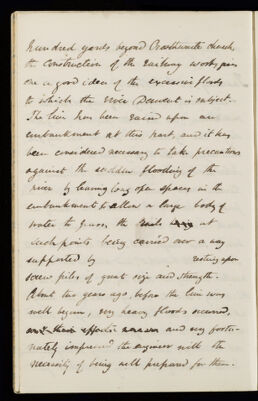 hundred yards beyond Crosthwaite church,
the construction of the railway works, gives
one a good idea of the excessive floods
to which the river Derwent is subject.
The line has been raised upon an
embankment at this part, and it has
been considered necessary to take precautions
against the sudden flooding of the
river by leaving long open spaces in the
embankment to allow a large body of
water to pass, the rails at
such points being carried over a way
supported by resting upon
screw piles of great size and strength.
About two years ago, before the line was
well begun, very heavy floods occurred,
and very fortu-
nately impressed the engineer with the
necessity of being well prepared for them.